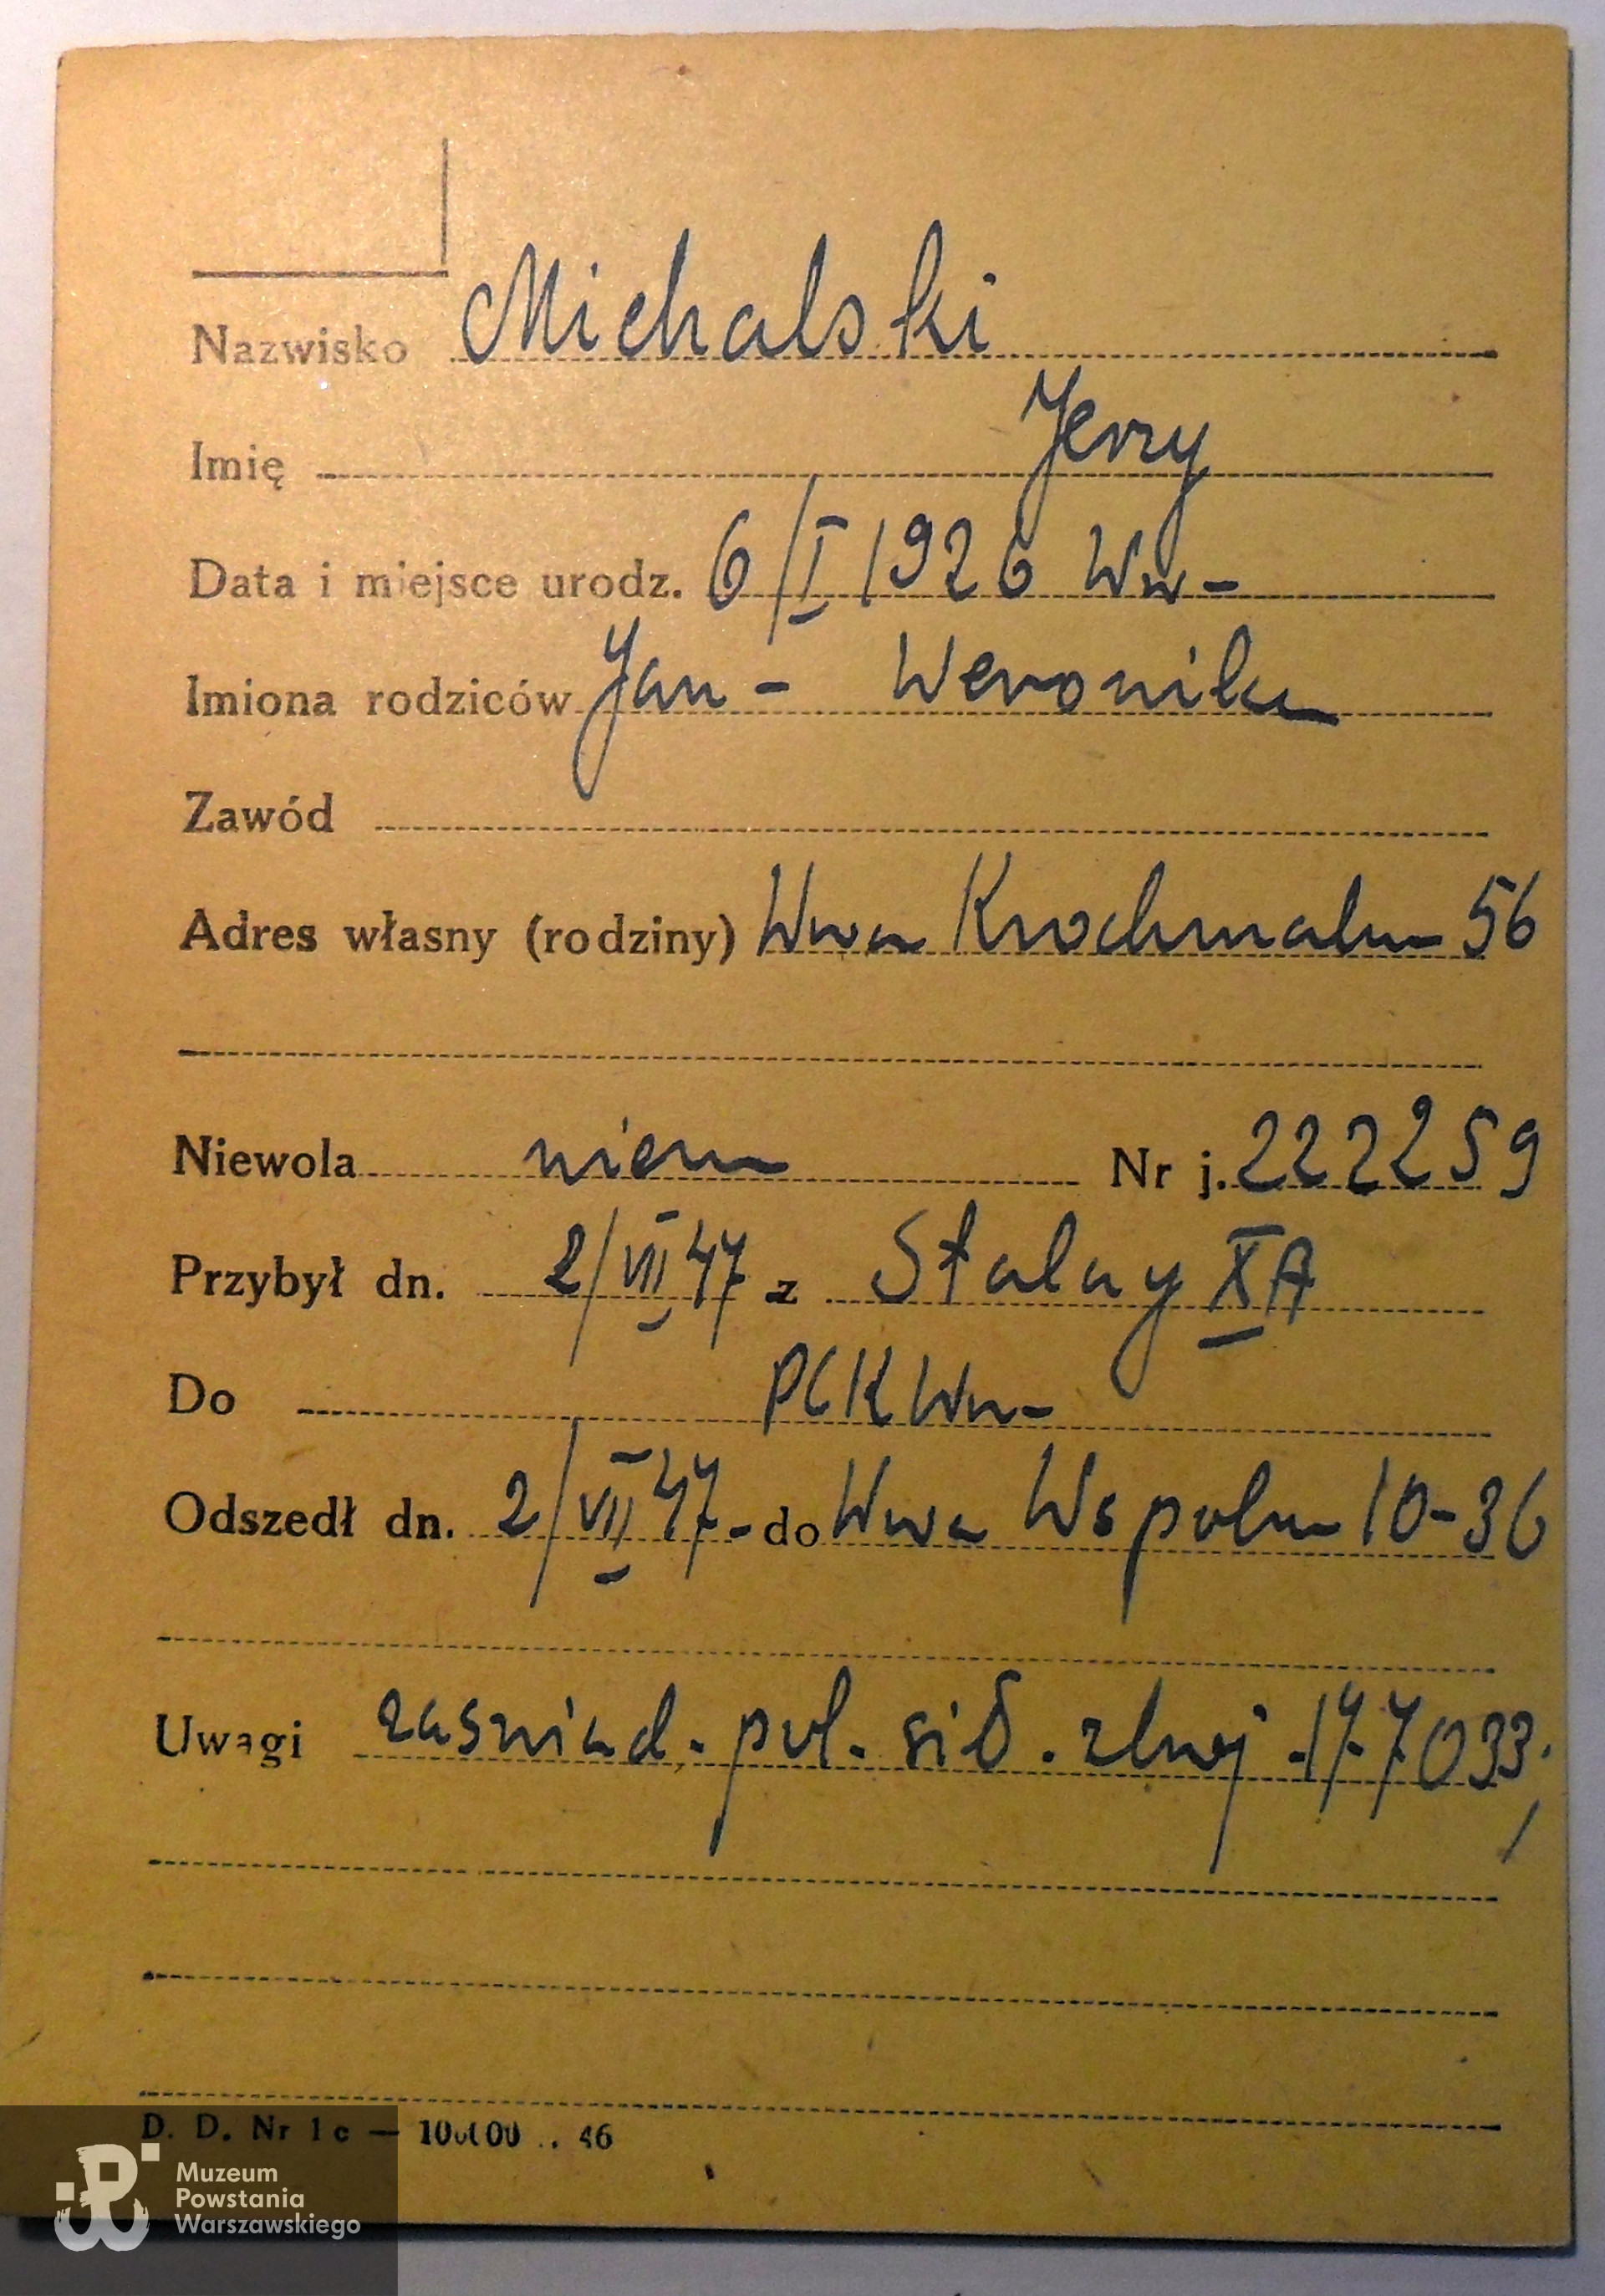 Nazwisko Michalski
Imię Jerzy
Data i miejsce urodz. 6/I 1926 Ww-
Imiona rodziców Jan - Weronika
Zawód
Adres własny (rodziny) Wwa Krochmalna 56
Niewola niem Nr j. 222259
Przybył dn. 2/VII 47 z Stalag XA
Do PCK Ww-
Odszedł dn. 2/VII 47 - do Wwa Wspolna 10-36
Uwagi zaswiad. pol. sił. zbroj. 177033;
D. D. Nr 1c — 46
Muzeum
Powstania
Warszawskiego